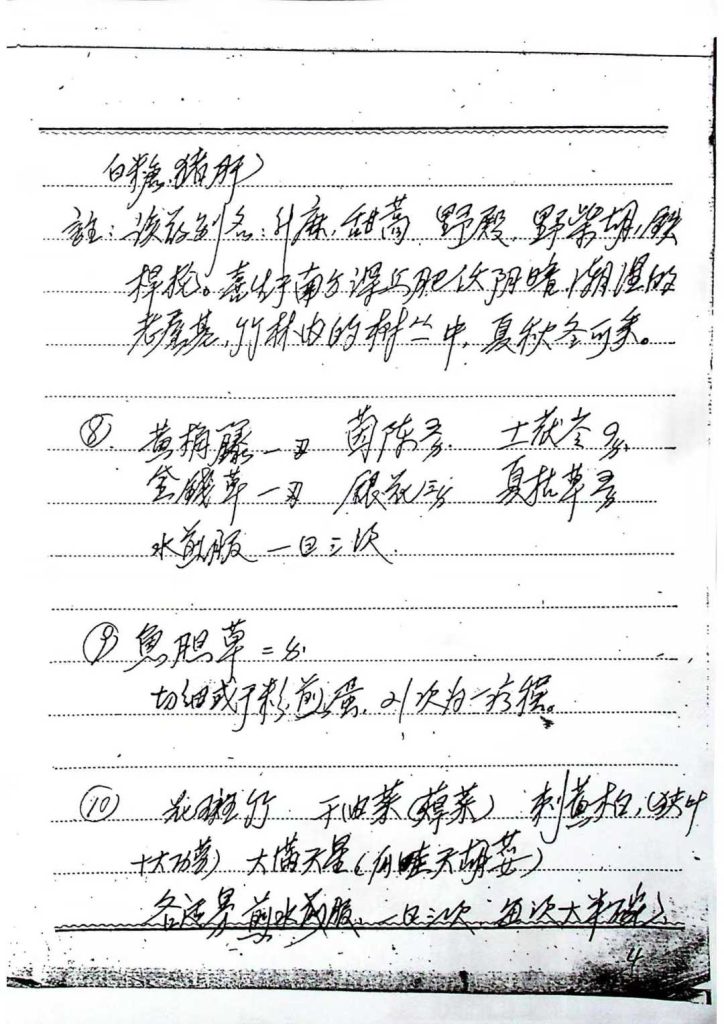 白糖、猪肝）
註：该药别名：升麻、甜蒿、野殿、野柴胡、铁
桿抢。喜生于南方深山肥伏阴暗、潮湿的
老屋基、竹林内的树丛中，夏秋冬可采。
⑧. 黄桷 一两 茵陈 五分. 土茯苓 九分.
金錢草 一两 银花 三分 夏枯草 五分
水煎服 一日三次.
⑨ 魚胆草 二分.
切细或干粉煎蛋，21次为一疗程。
⑩ 花斑竹 干油菜(蔊菜) 刺黄柏，(
十大功劳) 大满天星(天胡荽)
各适界 煎水 服，一日三次 每次大半碗）
4